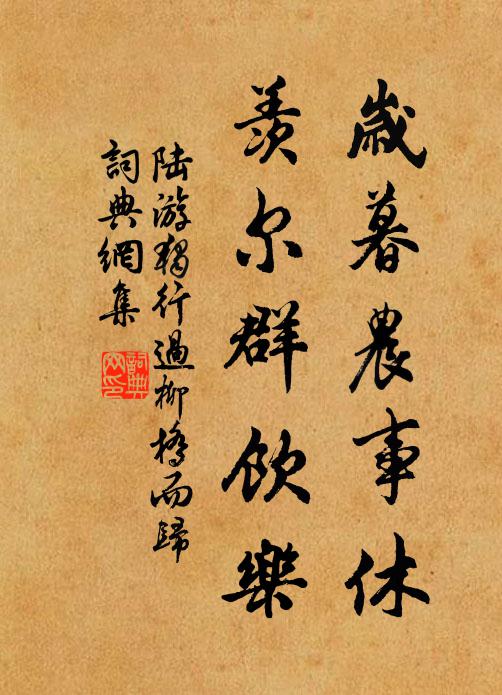 歲暮農事休
羨尔群飲樂
陸游獨行過柳橋而歸
詞典網集
詞典网印